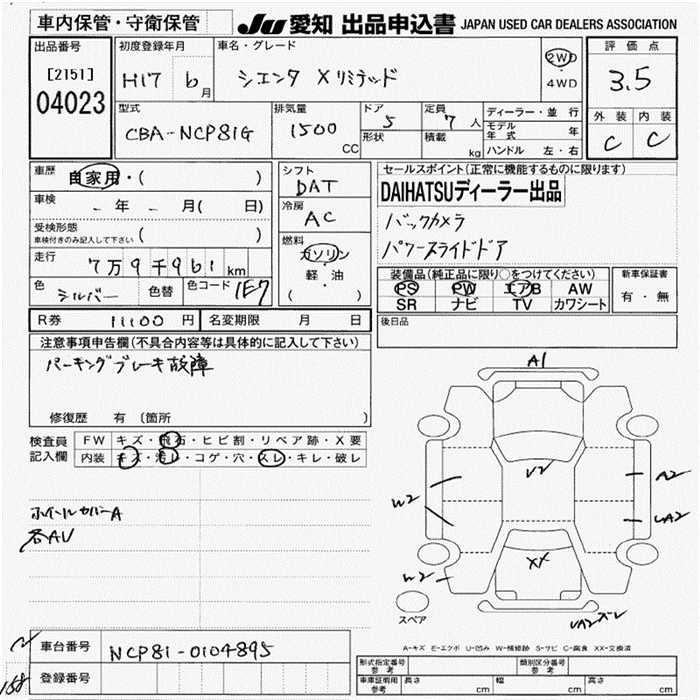 車内保管・守衛保管
JU 愛知 出品申込書 JAPAN USED CAR DEALERS ASSOCIATION
出品番号
[2151]
04023
初度登録年月
H17 6月
車名・グレード
シエンタ Xリミテッド
2WD
4WD
評価点
3.5
外装 内装
C C
型式
CBA-NCP81G
排気量
1500
CC
ドア
5
形状
定員
7人
積載
kg
ディーラー・並行
モデル年式 年
ハンドル 左・右
車歴
自家用・( )
車検
- 年 - 月( 日)
受検形態
車検付きのみ記入して下さい ( )
走行
7万9千961km
色
シルバー
色替
色コード 1E7
シフト
DAT
冷房
AC
燃料
ガソリン
・
軽・油
( )
セールスポイント(正常に機能するものに限ります)
DAIHATSUディーラー出品
バックカメラ
パワースライドドア
装備品(純正品に限り○をつけてください)
PS PW エアB AW
SR ナビ TV カワシート
新車保証書
有・無
後日品
R券 11100円
名変期限 月 日
注意事項申告欄(不具合内容等は具体的に記入して下さい)
パーキングブレーキ故障
修復歴 有 〔箇所 〕
検査員
記入欄
FW キズ・飛石・ヒビ割・リペア跡・X要
内装 キズ・汚レ・コゲ・穴・スレ・キレ・破レ
ホイールカバーA
各AU
A1
U2
W2
A2
UA2
W2
XX
UA2ズレ
スペア
A-キズ E-エクボ U-凹み W-補修跡 S-サビ C-腐食 XX-交換済
車台番号 NCP81-0104895
登録番号
168
形式指定番号
参考
類別区分番号
参考
車庫証明用
参考
長さ cm
幅 cm
高さ cm